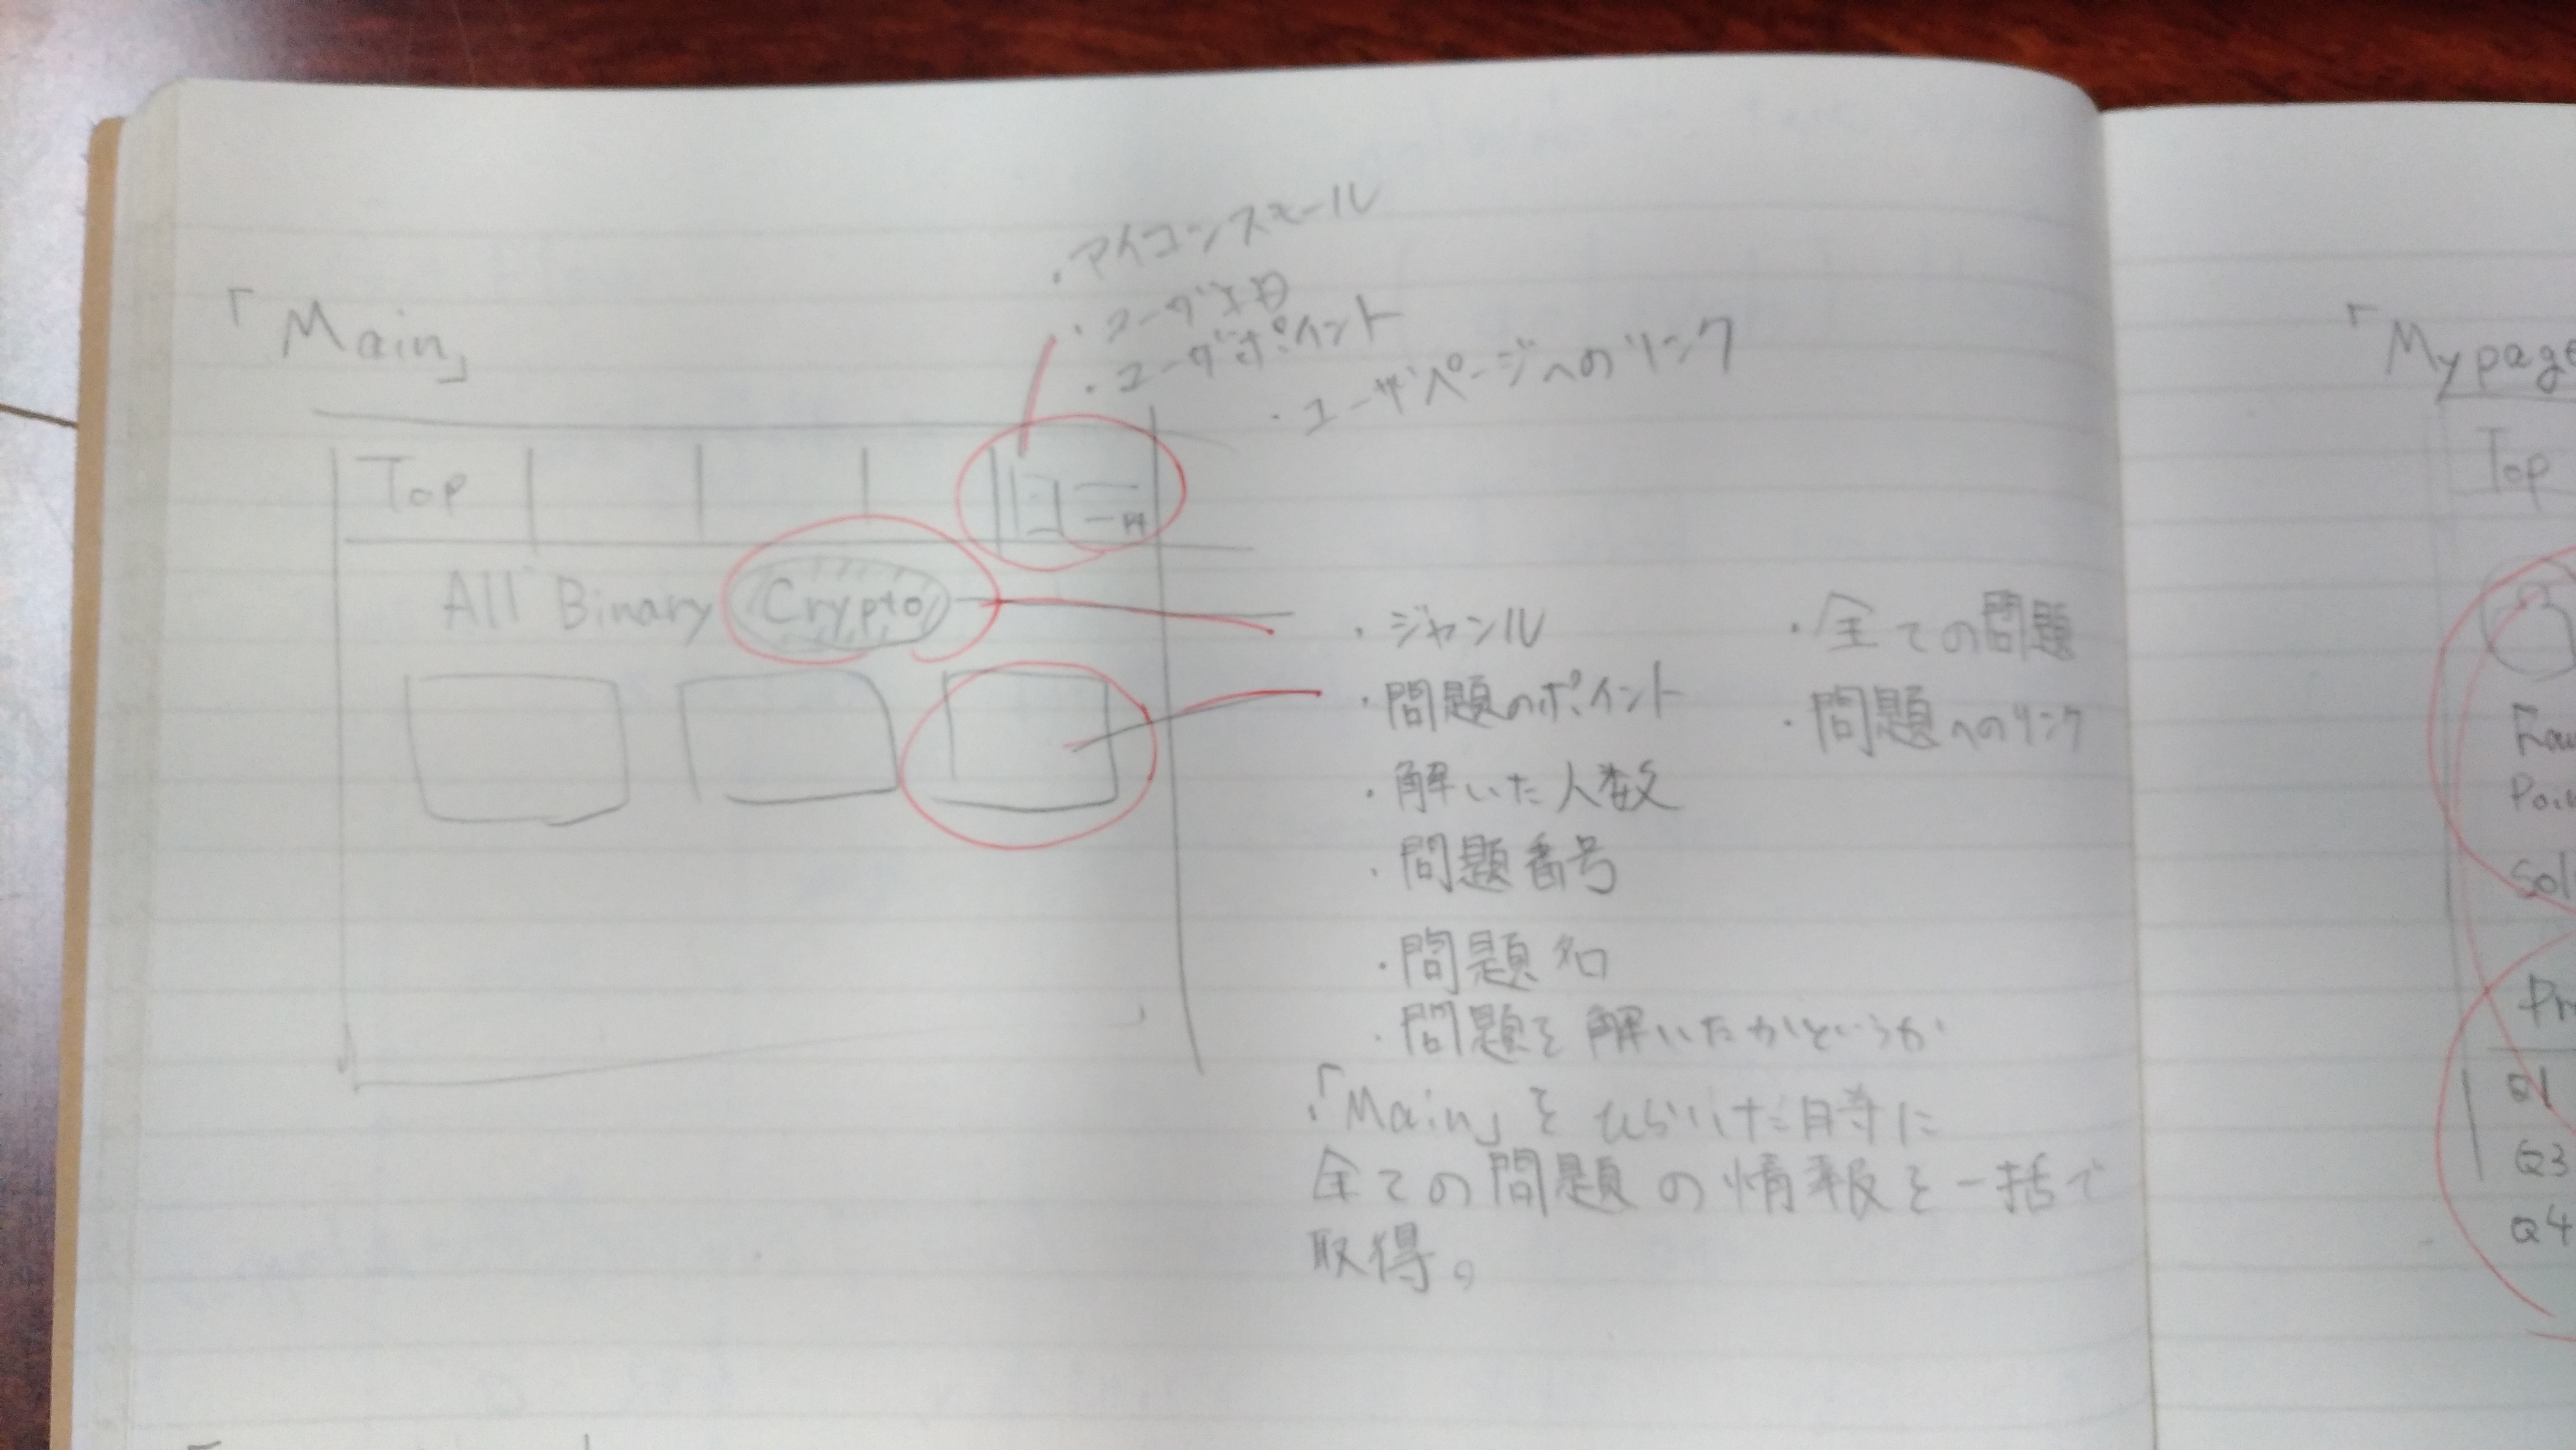 「Main」
・アイコンスモール
・ユーザ名
・ユーザポイント
・ユーザページへのリンク
Top
Pt
All Binary Crypto
・ジャンル
・問題のポイント
・解いた人数
・問題番号
・問題名
・問題を解いたかというか
・全ての問題
・問題へのリンク
・「Main」をひらいた時に
全ての問題の情報を一括で
取得。
「Mypage
Top
Q1
Q3
Q4